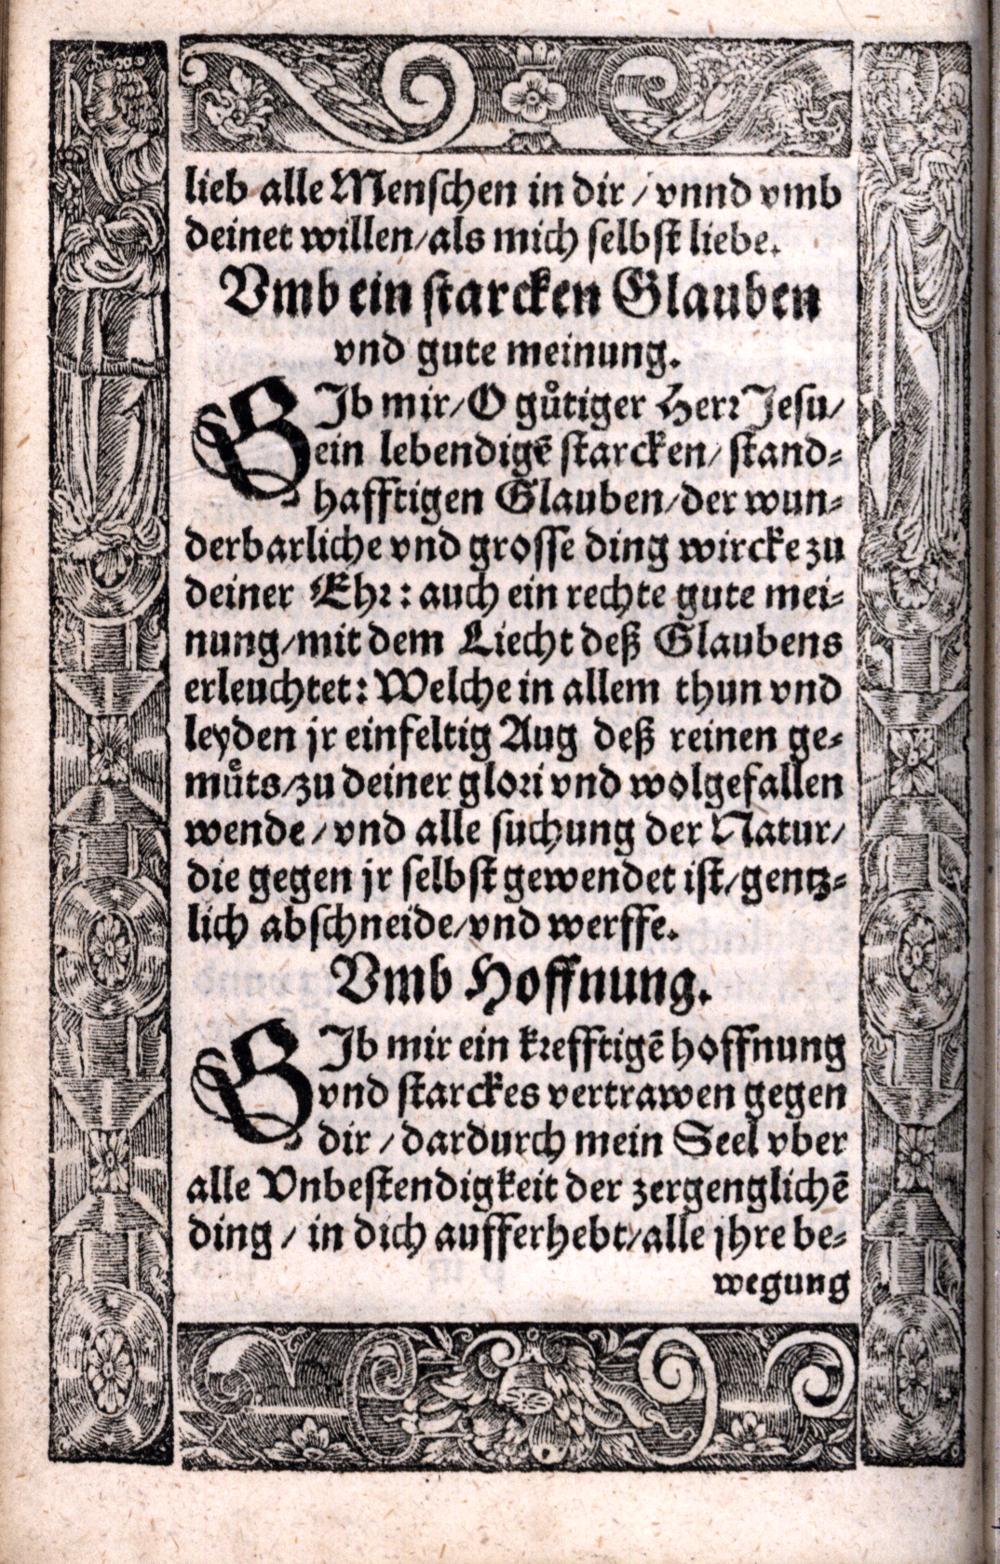 lieb alle Menschen in dir / vnnd vmb
deinet willen/als mich selbst liebe.
Vmb ein starcken Glauben
vnd gute meinung.
GIb mir/O guͤtiger Herr Jesu/
ein lebendigē starcken/stand⸗
hafftigen Glauben/der wun⸗
derbarliche vnd grosse ding wircke zu
deiner Ehr: auch ein rechte gute mei⸗
nung/mit dem Liecht deß Glaubens
erleuchtet: Welche in allem thun vnd
leyden jr einfeltig Aug deß reinen ge⸗
muͤts/zu deiner glori vnd wolgefallen
wende / vnd alle suchung der Natur/
die gegen jr selbst gewendet ist/gentz⸗
lich abschneide/vnd werffe.
Vmb Hoffnung.
GIb mir ein krefftigē hoffnung
vnd starckes vertrawen gegen
dir / dardurch mein Seel vber
alle Vnbestendigkeit der zergenglichē
ding / in dich aufferhebt/alle jhre be⸗
wegung